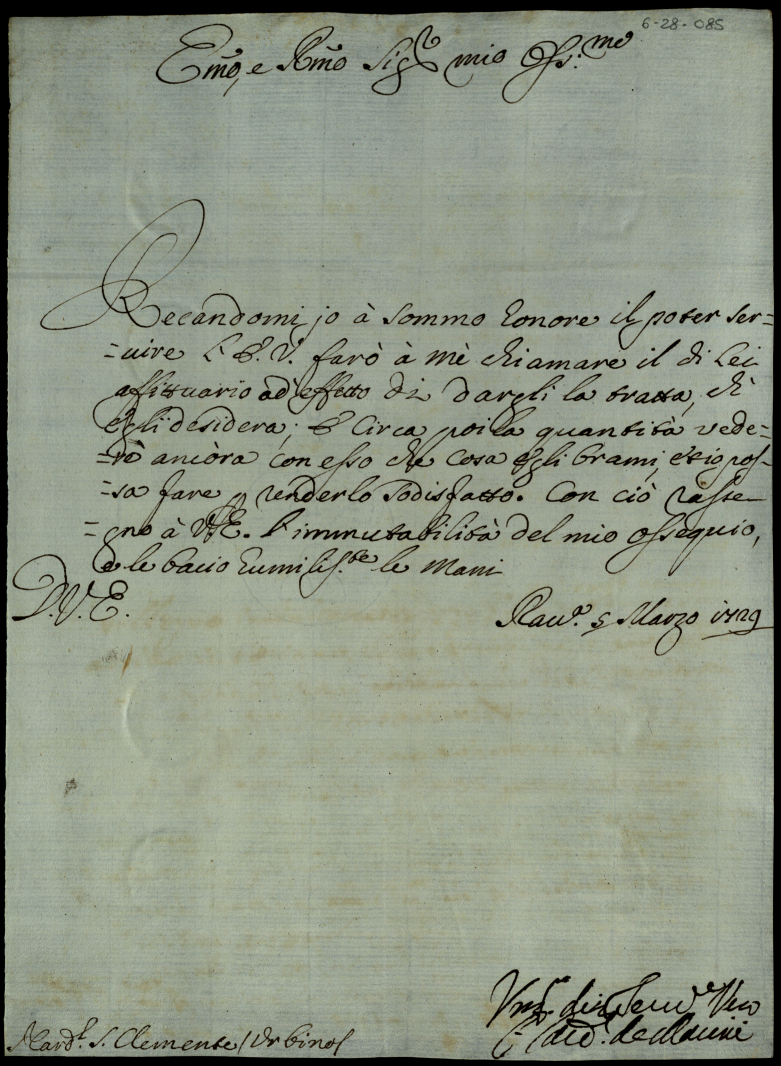 6-28-085
Emo, e Rmo Sigr mio Oss:mo
Recandomi jo à sommo honore il poter ser=
=uire l'E.V. farò à mè chiamare il di Lei
affittuario ad effetto di dargli la tratta, ch'
egli desidera; E circa poi la quantità vede=
=rò ancòra con esso che cosa egli brami, et io pos=
=sa fare p renderlo sodisfatto. Con ciò rasse=
=gno à V.E. l'immutabilità del mio ossequio,
e le bacio humiliss.te le Mani
D.V.E.
Rauª. 5 Marzo 1729
Card.l S. Clemente / Urbino /
Card.